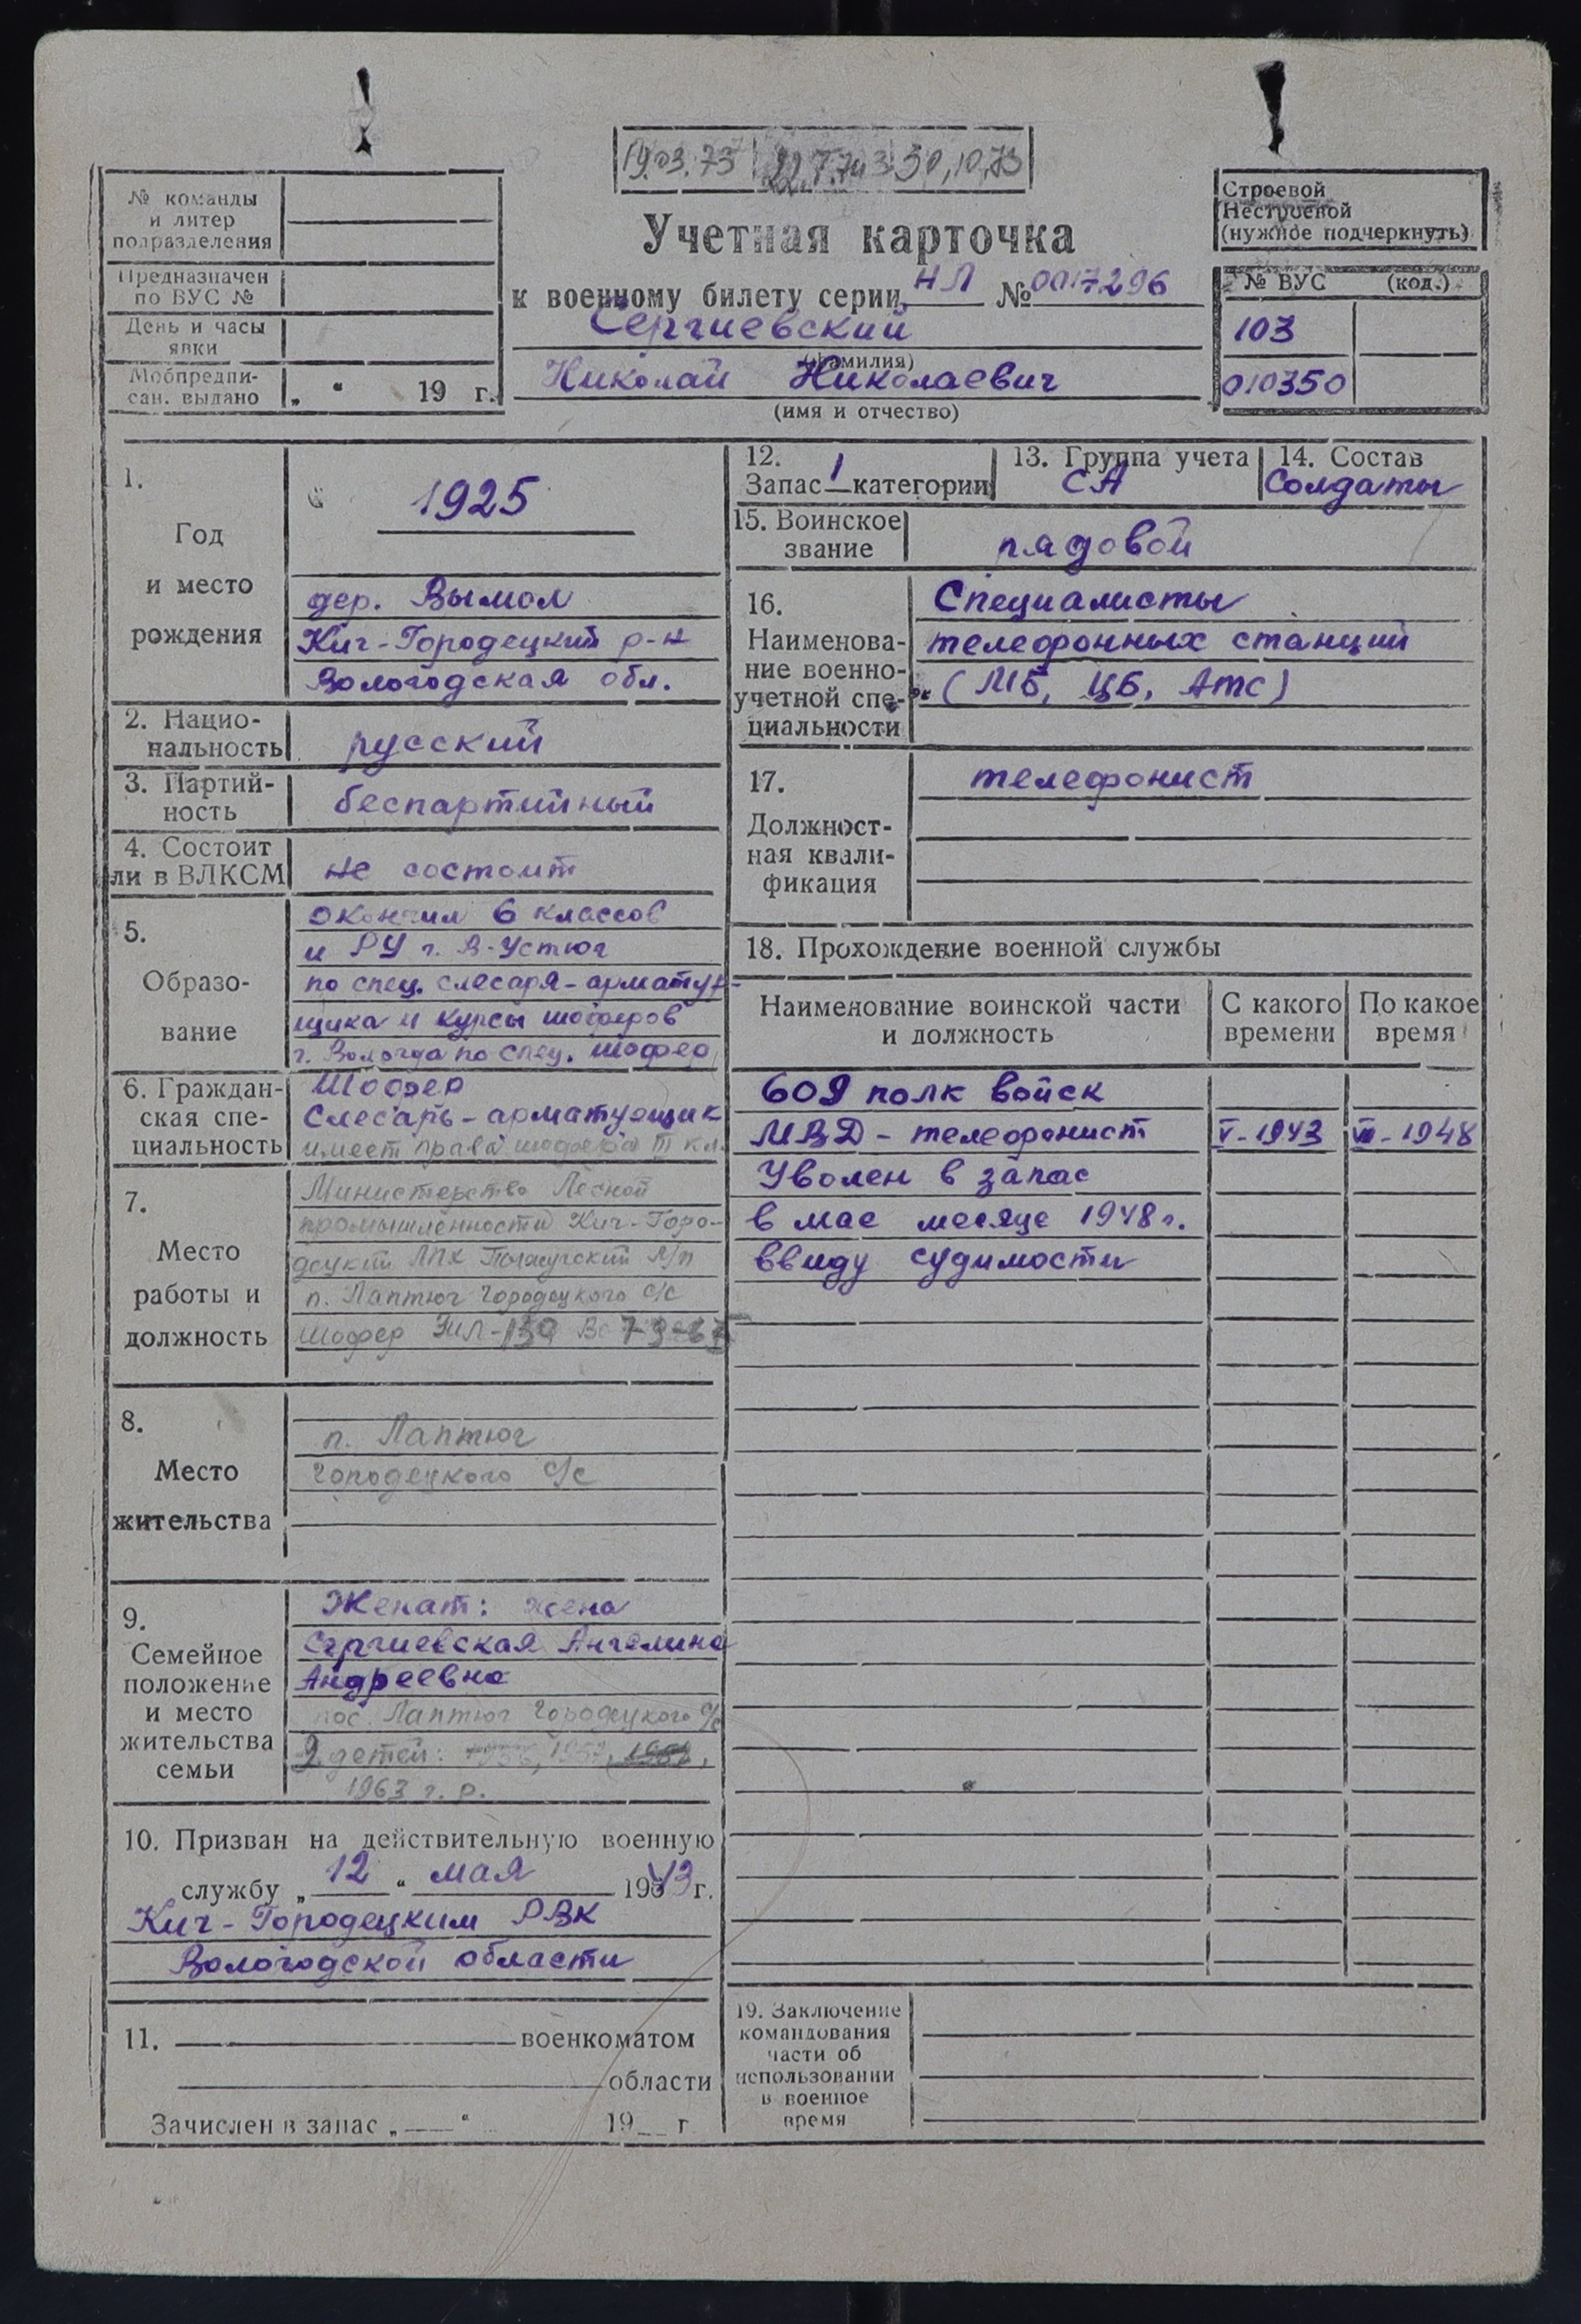 19.03.73
30.10.73
№ команды
и литер
подразделения
Предназначен
по ВУС №
День и часы
явки
Мобпредпи-
сан. выдано „ “ 19 г.
Учетная карточка
к военному билету серии НЛ № 0017296
Сергиевский
(фамилия)
Николай Николаевич
(имя и отчество)
Строевой
Нестроевой
(нужное подчеркнуть)
№ ВУС (код.)
103
010350
1.
Год
и место
рождения
1925
дер. Вымол
Кич-Городецкий р-н
Вологодская обл.
2. Нацио-
нальность
русский
3. Партий-
ность
беспартийный
4. Состоит
ли в ВЛКСМ
не состоит
5.
Образо-
вание
окончил 6 классов
и РУ г. В-Устюг
по спец. слесаря-арматур-
щика и курсы шоферов
г. Вологда по спец. шофер
6. Граждан-
ская спе-
циальность
Шофер
Слесарь-арматурщик
имеет права шофера III кл.
7.
Место
работы и
должность
Министерство Лесной
промышленности Кич-Горо-
децкий ЛПХ л/п
п. Лаптюг Городецкого с/с
шофер Зил-130
8.
Место
жительства
п. Лаптюг
Городецкого с/с
9.
Семейное
положение
и место
жительства
семьи
Женат: жена
Сергиевская Ангелина
Андреевна
пос. Лаптюг Городецкого с/с
2 детей: 1956, 1957,
1963 г.р.
10. Призван на действительную военную
службу „12“ мая 1943 г.
Кич-Городецким РВК
Вологодской области
11. военкоматом
области
Зачислен в запас „ “ 19 г
12.
Запас 1 категории
13. Группа учета
СА
14. Состав
Солдаты
15. Воинское
звание
рядовой
16.
Наименова-
ние военно-
учетной спе-
циальности
Специалисты
телефонных станций
(МБ, ЦБ, Атс)
17.
Должност-
ная квали-
фикация
телефонист
18. Прохождение военной службы
Наименование воинской части
и должность
С какого
времени
По какое
время
609 полк войск
МВД - телефонист V-1943 VII-1948
Уволен в запас
в мае месяце 1948 г.
ввиду судимости
19. Заключение
командования
части об
использовании
в военное
время